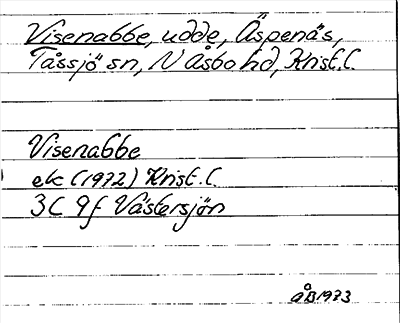 Visenabbe, udde, Äspenäs,
Tåssjö sn, N Åsbo hd, Krist. l.
Visenabbe
ek (1972) Krist. l.
3C 9f Västersjön
ÅB 1973